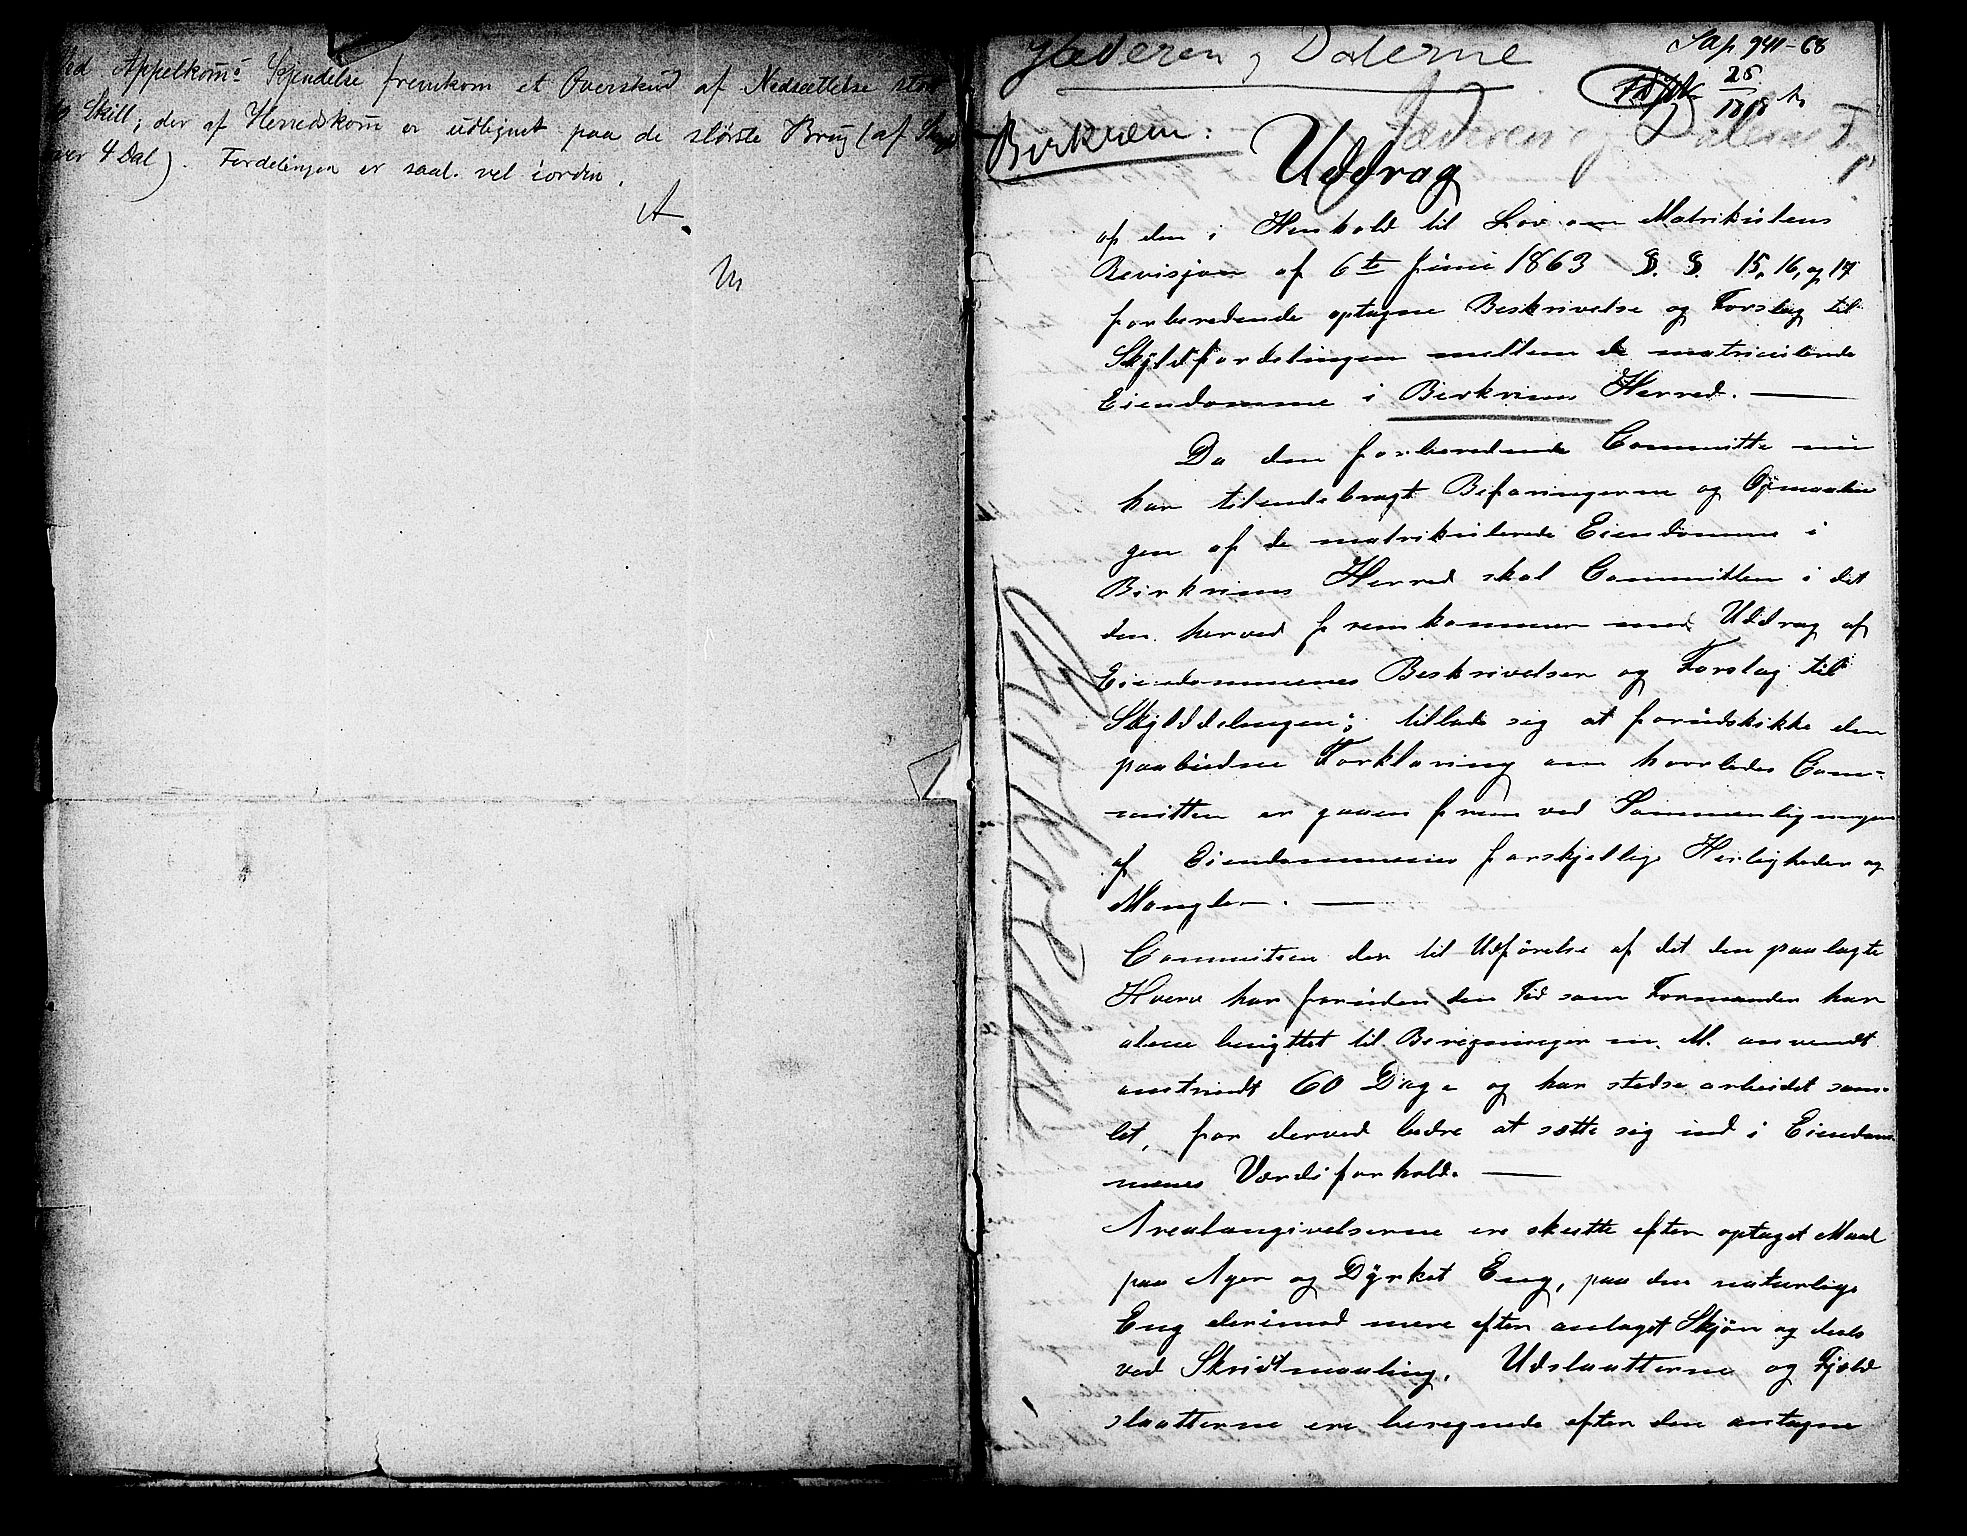 Ved Appelkom̅s Kjendelse fremkom et Overskud af Nedsættelse stor
Skill, der af Herredskom̅ er udlignet paa de største Brug (af
over 4 Dal). Fordelingen er saal. vel iorden.
A.
M
Jæderen og Dalerne
Jap 941-68
25
Jæderen og Dalerne
Birkrem:
Uddrag
af den i Henhold til Lov om Matrikulens
Revisjon af 6te Juni 1863 §. §. 15, 16, og 17
forberedende optagne Beskrivelse og Forslag til
Skyldfordelingen mellem de matriculerede
Eiendomme i Birkrims Herred. —
Da den forberedende Committe nu
har tilendebragt Befaringerne og Opmaalin
gen af de matrikulerede Eiendomme i
Birkrims Herred skal Committen i det
den herved fremkommer med Uddrag af
Eiendommenes Beskrivelser og Forslag til
Skylddelingen; tillade sig at forudskikke den
paabudne Forklaring om hvorledes Com-
mitten er gaaen frem ved Sammenligningen
af Eiendommenes forskjellige Herligheder og
Mangler. —
Commitsen der til Udførelse af det den paalagte
Hverv har foruden den Tid som Formanden har
alene benyttet til Beregninger m. M. anvendt
omtrindt 60 Dage og har stedse arbeidet sam-
let, for derved bedre at sætte sig ind i Eiendom-
menes Værdiforhold. —
Arealangivelserne ere skeette efter optaget Maal
paa Ager og Dyrket Eng, paa den naturlige
Eng derimod mere efter anlaget Skjøn og deels
ved Skridtmaaling. Udslaatterne og Fjeld
slaatterne ere beregnede efter den antagne
Birkrem